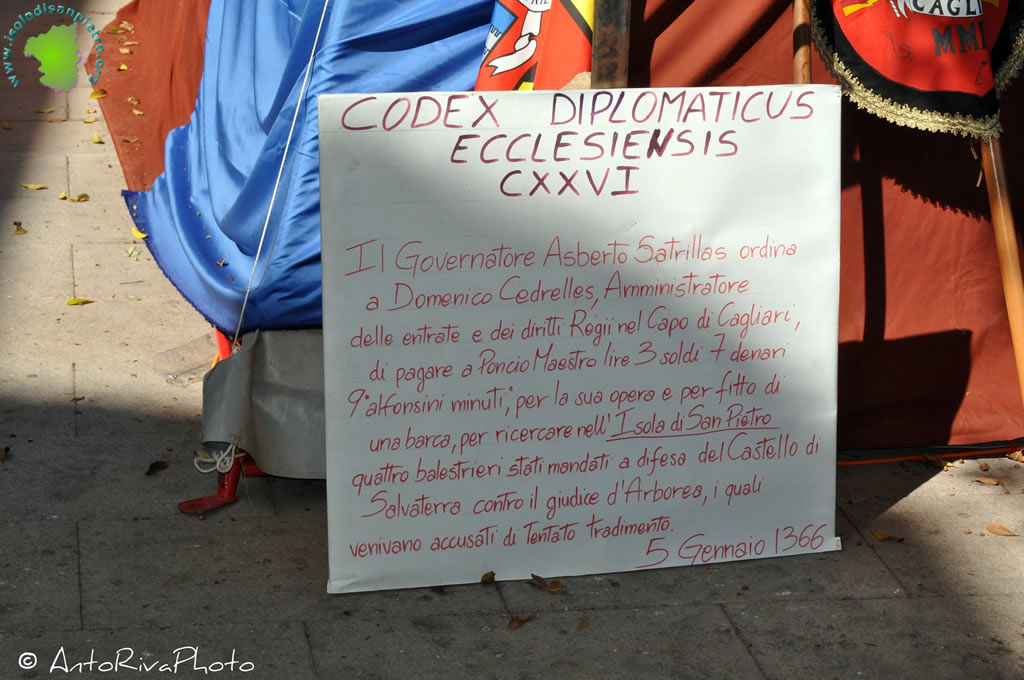 www.isoladisanpietro.org
CAGLI
MMI
CODEX DIPLOMATICUS
ECCLESIENSIS
CXXVI
Il Governatore Asberto Satrillas ordina
a Domenico Cedrelles, Amministratore
delle entrate e dei diritti Regii nel Capo di Cagliari,
di pagare a Poncio Maestro lire 3 soldi 7 denari
9 "alfonsini minuti", per la sua opera e per fitto di
una barca, per ricercare nell'Isola di San Pietro
quattro balestrieri stati mandati a difesa del Castello di
Salvaterra contro il giudice d'Arborea, i quali
venivano accusati di Tentato tradimento.
5 Gennaio 1366
© AntoRivaPhoto